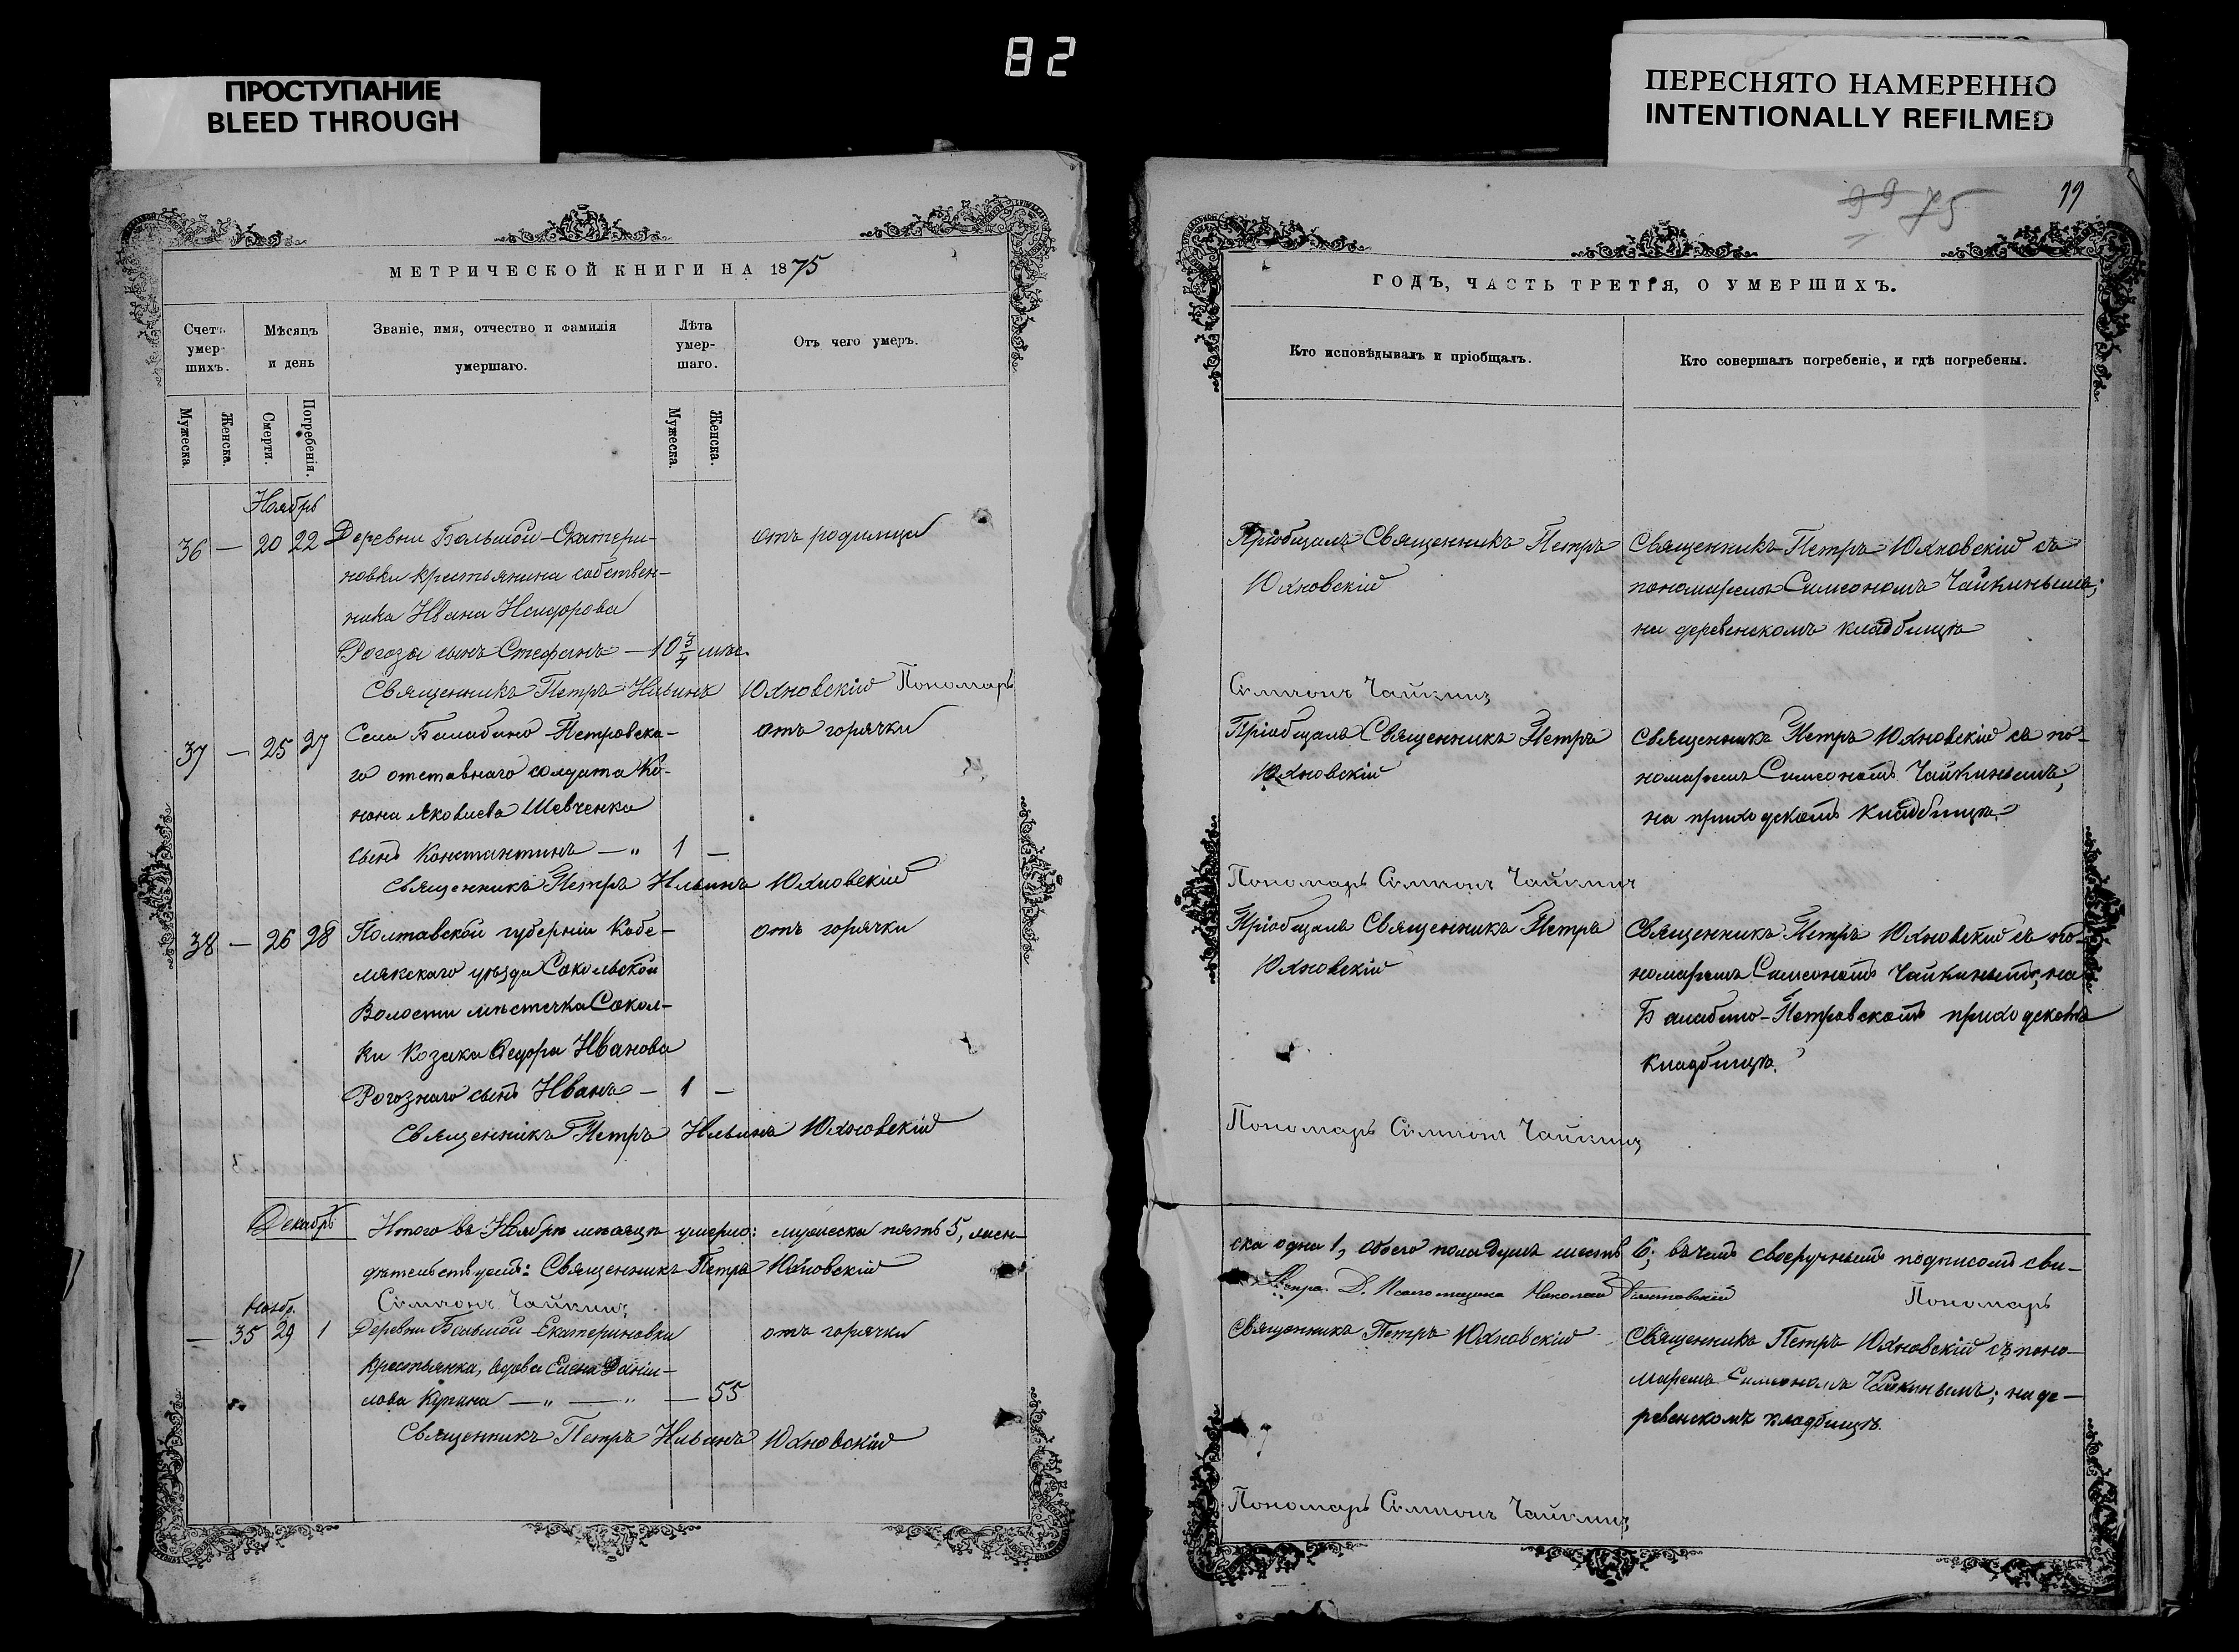 82
ПРОСТУПАНИЕ
BLEED THROUGH
ПЕРЕСНЯТО НАМЕРЕННО
INTENTIONALLY REFILMED
МЕТРИЧЕСКОЙ КНИГИ НА 1875
Счетъ умер- шихъ.
Мѣсяцъ и день
Званіе, имя, отчество и фамилія умершаго.
Лѣта умер- шаго.
Отъ чего умеръ.
Мужеска.
Женска.
Смерти.
Погребенія.
Мужеска.
Женска.
Ноябрь
36 — 20 22 Деревни Большой-Екатери-
новки крестьянина собствен-
ника Ивана Исидорова
Рогозы сынъ Стефанъ — 10 3/4 мѣс.
отъ родимца
Священникъ Петръ Ильинъ Юхновскій Пономарь
37 — 25 27 Села Балабино-Петровска-
го отставнаго солдата Ко-
нона Яковлева Шевченка
сынъ Константинъ — " 1 —
отъ горячки
Священникъ Петръ Ильинъ Юхновскій
38 — 26 28 Полтавской губерніи Кобе-
лякскаго уѣзда Сокольской
Волости мѣстечка Сокол-
ки Козака Ѳедора Иванова
Рогознаго сынъ Иванъ — 1 —
отъ горячки
Священникъ Петръ Ильинъ Юхновскій
Декабрь
Итого въ Ноябрѣ мѣсяцѣ умерло: мужеска пять 5, жен-
дѣтельствуемъ: Священникъ Петръ Юхновскій
Симеонъ Чайкинъ
Ноябр.
— 35 29 1 Деревни Большой-Екатериновки
крестьянка, вдова Елена Даніи-
лова Купина — " — " — 55
отъ горячки
Священникъ Петръ Ильинъ Юхновскій
99 75
99
ГОДЪ, ЧАСТЬ ТРЕТІЯ, О УМЕРШИХЪ.
Кто исповѣдывалъ и пріобщалъ.
Кто совершалъ погребеніе, и гдѣ погребены.
Пріобщалъ Священникъ Петръ
Юхновскій
Священникъ Петръ Юхновскій съ
пономаремъ Симеономъ Чайкинымъ;
на деревенскомъ кладбищѣ
Симеонъ Чайкинъ
Пріобщалъ Священникъ Петръ
Юхновскій
Священникъ Петръ Юхновскій съ по-
номаремъ Симеономъ Чайкинымъ,
на приходскомъ кладбищѣ.
Пономарь Симеонъ Чайкинъ
Пріобщалъ Священникъ Петръ
Юхновскій
Священникъ Петръ Юхновскій съ по-
номаремъ Симеономъ Чайкинымъ; на
Балабино-Петровскомъ приходскомъ
кладбищѣ.
Пономарь Симеонъ Чайкинъ
ска одна 1, обоего пола душъ шесть 6; въ чемъ своеручнымъ подписомъ сви-
Д. Псаломщика Николай
Пономарь
Священникъ Петръ Юхновскій
Священникъ Петръ Юхновскій съ поно-
маремъ Симеономъ Чайкинымъ; на де-
ревенскомъ кладбищѣ.
Пономарь Симеонъ Чайкинъ